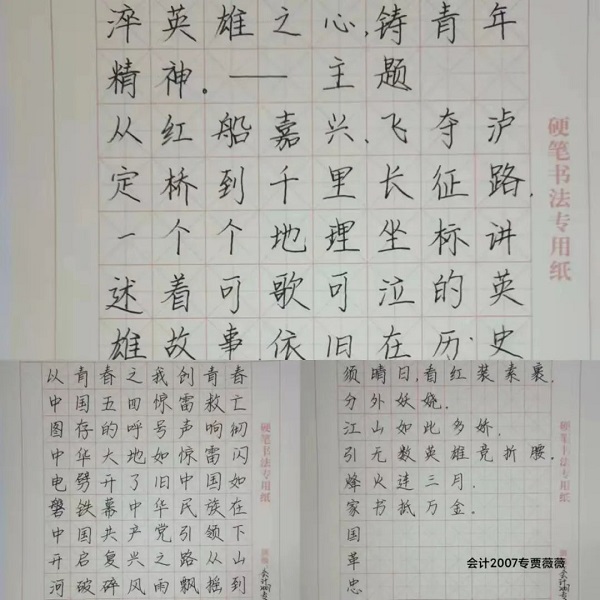 淬英雄之心,铸青年
精神。——主题
从红船嘉兴、飞夺泸
定桥到千里长征路,
一个个地理坐标讲
述着可歌可泣的英
雄故事,依旧在历史
硬笔书法专用纸
以青春之我创青春
中国五四惊雷救亡
图存的呼号声响彻
中华大地如惊雷闪
电劈开了旧中国如
磐铁幕中华民族在
中国共产党引领下
开启复兴之路从山
河破碎风雨飘摇到
硬笔书法专用纸
须晴日,看红装素裹,
分外妖娆。
江山如此多娇,
引无数英雄竞折腰。
烽火连三月,
家书抵万金。
国
革
忠
硬笔书法专用纸
会计2007专贾薇薇